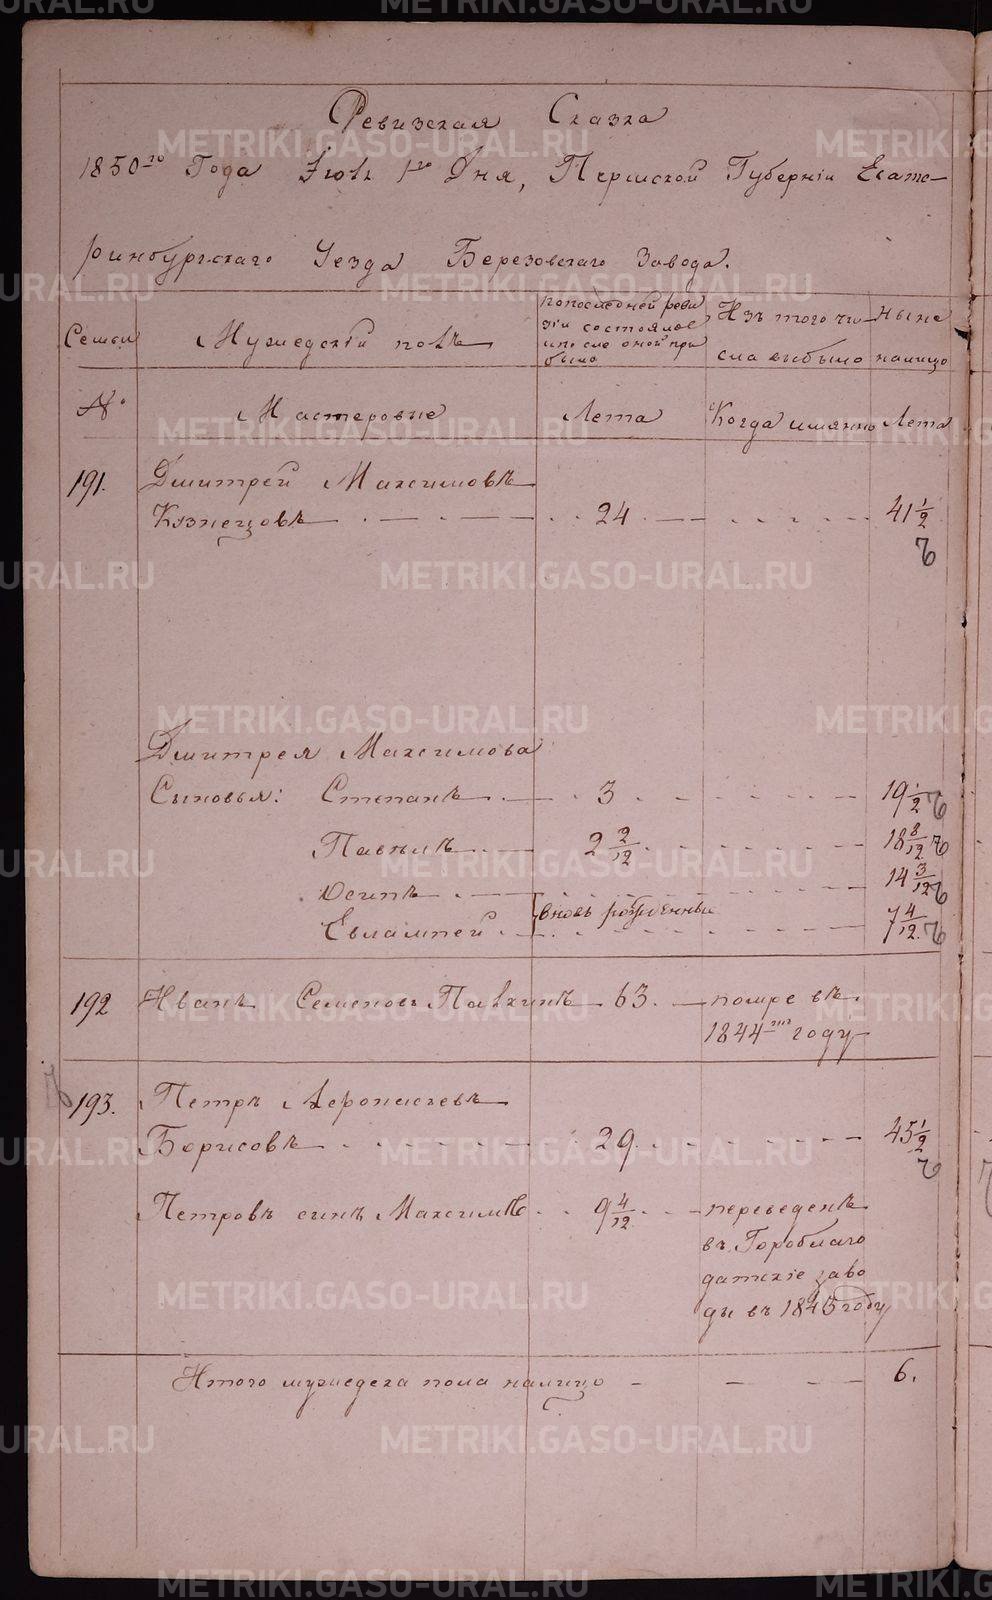 Ревизская Сказка
1850го Года Июля 1го Дня, Пермской Губерніи Екате-
ринбургскаго Уезда Березовскаго Завода.
Семьи
Мужескій полъ
попоследней реви
зіи состоялое
ипосле оной при
было
Изъ того чи-
сла выбыло
Ныне
налицо
№
Мастеровые
Лета
Когда имянно
Лета
191.
Дмитрей Максимовъ
Кузнецовъ
24
41 1/2
Дмитрея Максимова
Сыновья: Степанъ
3
19 1/2
Павелъ
2 2/12
18 8/12
Осипъ
14 3/12
Евлампей
вновь рожденные
7 4/12
192
Иванъ Семеновъ
63.
помре въ
1844мъ году
193.
Петръ
Борисовъ
29
45 1/2
Петровъ сынъ Максимъ
9 4/12
переведенъ
въ Гороблаго
датскіе заво
ды въ 1845 году
Итого мужеска пола налицо
6.
METRIKI.GASO-URAL.RU